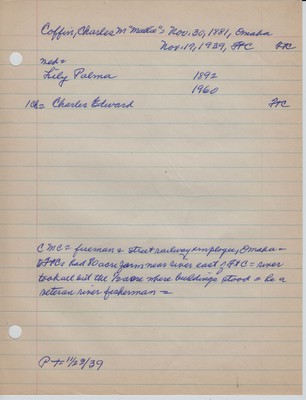 Coffin, Charles M "Mattie"s Nov. 30, 1881, Omaha
Nov. 19, 1939, FtC FtC
med=
Lily Palma 1892
1960
1 ch= Charles Edward FtC
CMC = fireman & street railway employee, Omaha =
FtCs had 80 acre farm near river east of FtC = river
took all but the base where buildings stood = he a
veteran river fisherman =
P += 11/23/39